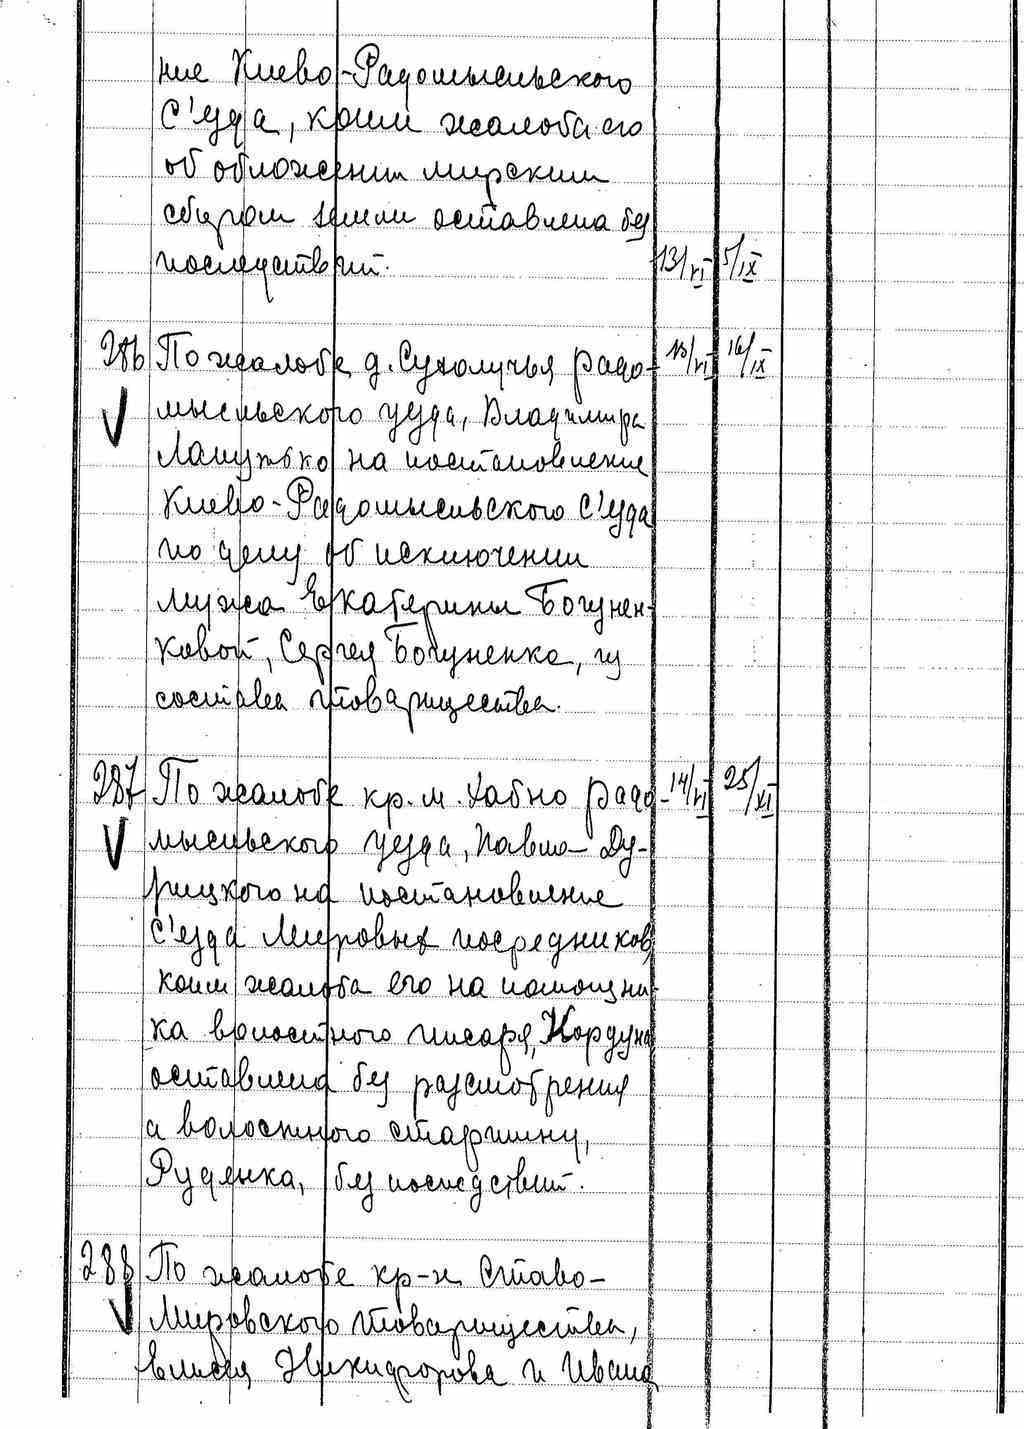 ние Киево-Радомысльского
С'езда, коим жалоба его
об обложении мирским
сбором земли оставлена без
последствий. 13/VI 5/IX
286 По жалобе д. Сухолучья радо- 13/VI 16/IX
мысльского уезда, Владимира
на постановление
Киево-Радомысльского С'езда
по делу об исключении
мужа Екатерины Богунен-
ковой, Сергея Богуненка, из
состава товарищества.
287 По жалобе кр. м. Хабно радо- 14/VI 25/XI
мысльского уезда, Павла Ду-
рицкого на постановление
С'езда Мировых посредников,
коим жалоба его на помощни-
ка волостного писаря, Кордуна
оставлена без рассмотрения
а волостного старшину,
Руденка, без последствий.
288 По жалобе кр-н Ставо-
Мировского товарищества,
Никифорова и Ивана